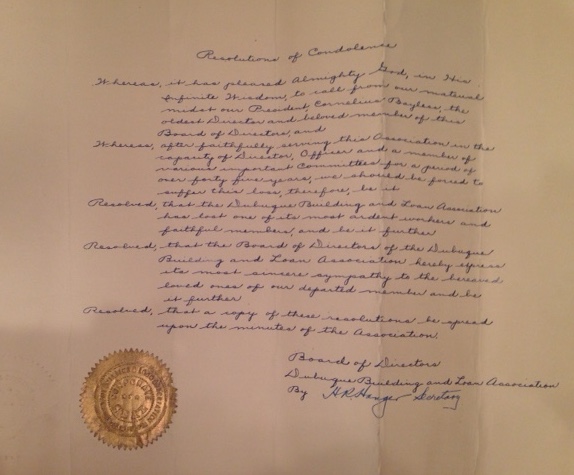 Resolutions of Condolence
Whereas, it has pleased Almighty God, in His
Infinite Wisdom, to call from our material
midst our President, Cornelius Bayless, the
oldest Director and beloved member of this
Board of Directors, and
Whereas, after faithfully serving this Association in the
capacity of Director, Officer and a member of
various important Committees, for a period of
over forty five years, we should be forced to
suffer this loss, therefore, be it
Resolved, that the Dubuque Building and Loan Association
has lost one of its most ardent workers and
faithful members, and be it further
Resolved, that the Board of Directors of the Dubuque
Building and Loan Association hereby express
its most sincere sympathy to the bereaved
loved ones of our departed member and be
it further
Resolved, that a copy of these resolutions be spread
upon the minutes of the Association.
Board of Directors
Dubuque Building and Loan Association
By H.R. Secretary